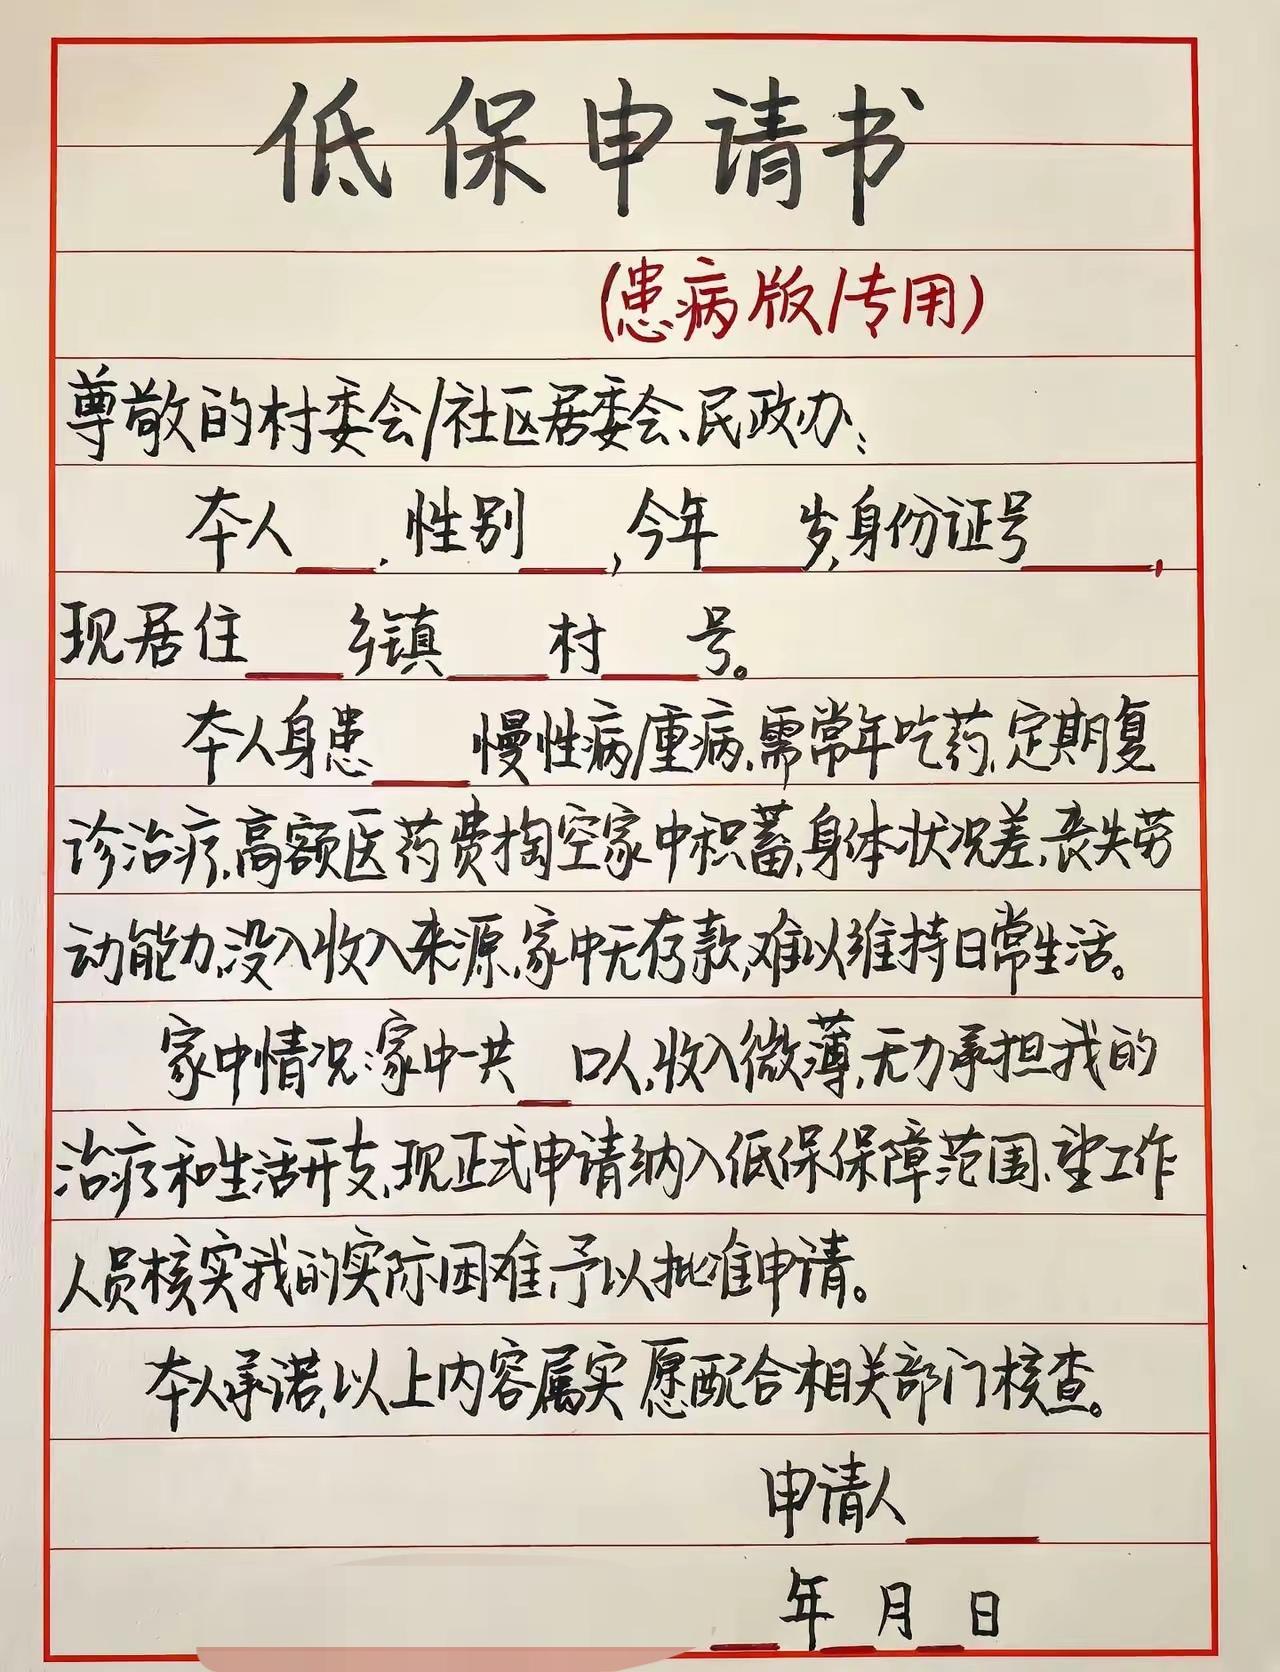 低保申请书
(患病版/专用)
尊敬的村委会/社区居委会、民政办:
本人___,性别___,今年___岁,身份证号___,
现居住___乡镇___村___号。
本人身患___慢性病/重病,需常年吃药,定期复
诊治疗,高额医药费掏空家中积蓄,身体状况差,丧失劳
动能力,没入收入来源,家中无存款,难以维持日常生活。
家中情况:家中一共___口人,收入微薄,无力承担我的
治疗和生活开支,现正式申请纳入低保保障范围,望工作
人员核实我的实际困难,予以批准申请。
本人承诺,以上内容属实愿配合相关部门核查。
申请人___
___年___月___日